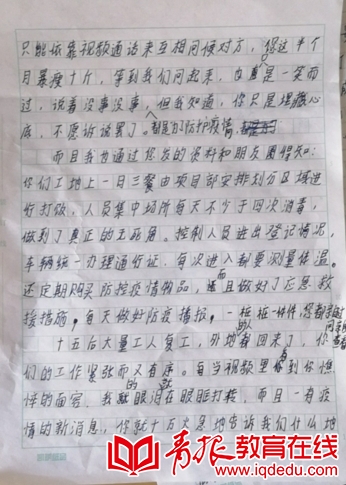 只能依靠视频通话来互相问候对方，您这半个
月暴瘦十斤，等到我们问起来，也总是一笑而
过，说着没事没事，但我知道，你只是埋藏心
底，不愿诉说罢了。都是为了防护疫情
而且我也通过您发的资料和朋友圈得知：
你们工地上一日三餐由项目部安排划分区域进
行打饭，人员集中场所每天不少于四次消毒，
做到了真正的无死角。控制人员进出登记情况，
车辆统一办理通行证，每次进入都要测量体温。
还定期购买防控疫情物品，而且做好了应急救
援措施，每天做好防疫播报，一桩桩一件件，您都
十五后大量工人复工，外地的人都回来了，你
们的工作紧张而又有序。每当视频里看到你憔
悴的面容，我的眼泪就在眼眶打转，而且一有疫
情的新消息，你就十万火急地告诉我们什么地
青报教育在线
www.iqdedu.com